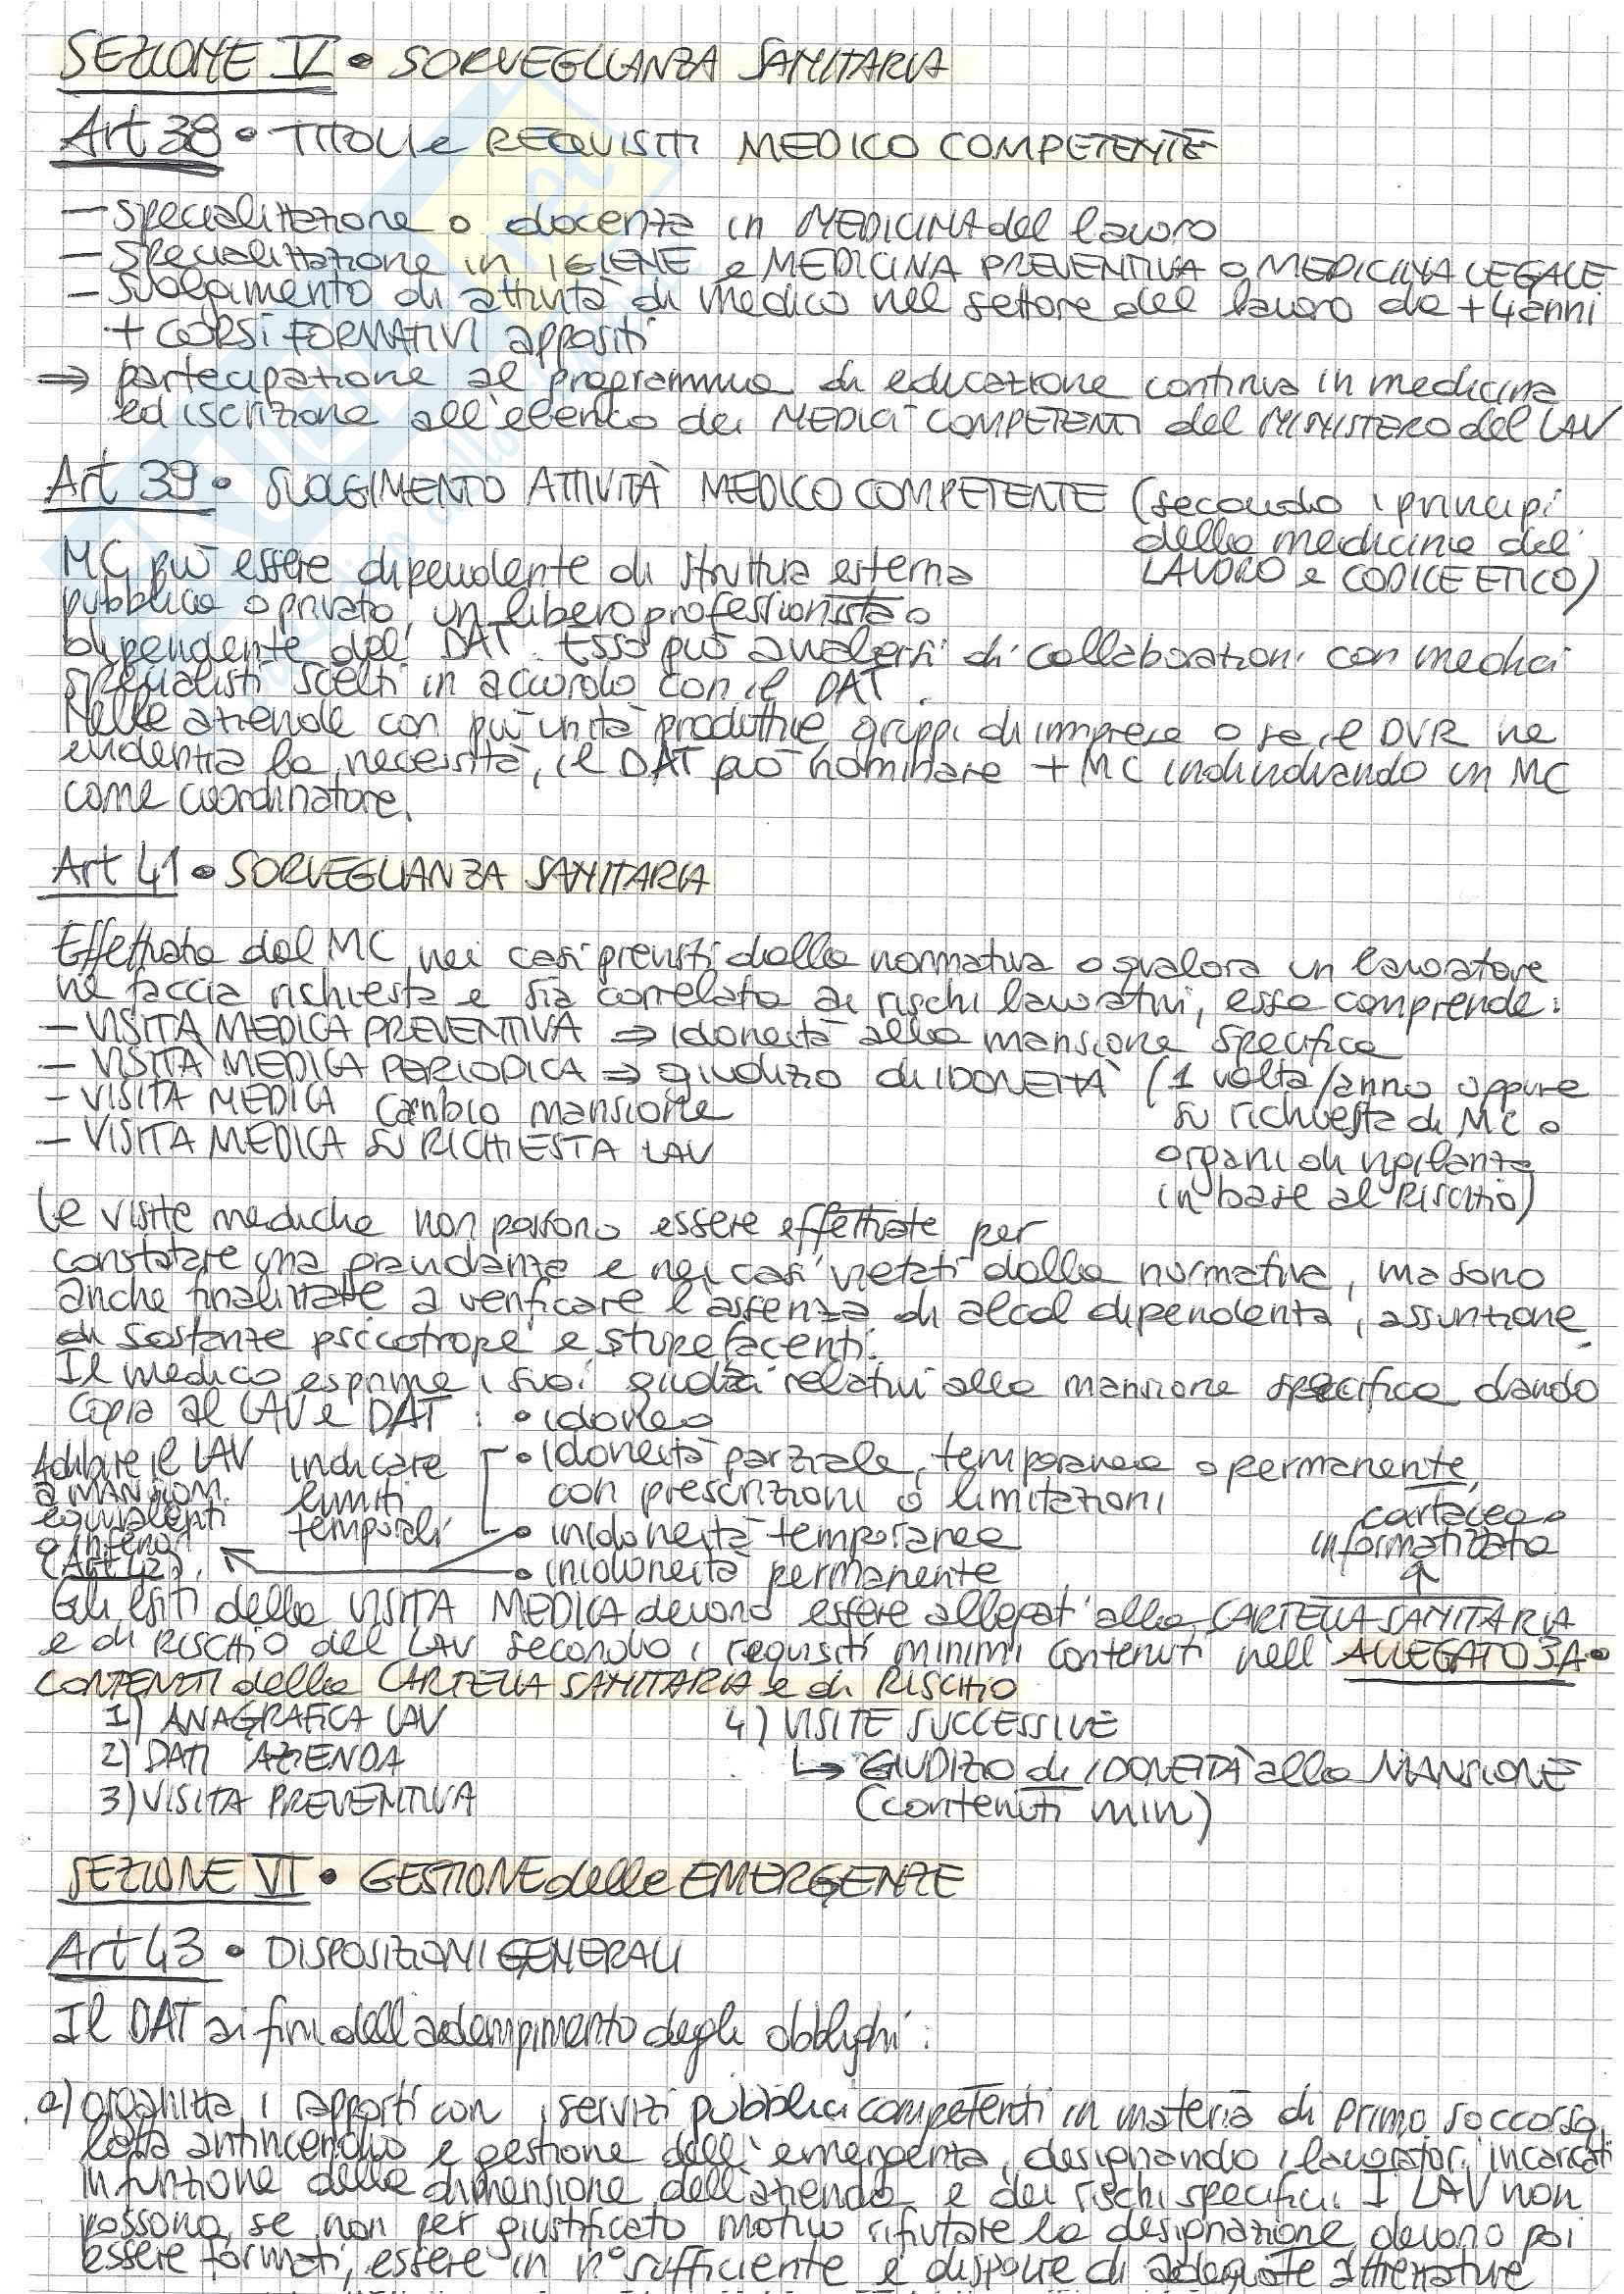 SEZIONE V • SORVEGLIANZA SANITARIA
Art 38 • TITOLI e REQUISITI MEDICO COMPETENTE
– specializzazione o docenza in MEDICINA del lavoro
– specializzazione in IGIENE e MEDICINA PREVENTIVA o MEDICINA LEGALE
– svolgimento di attività di medico nel settore del lavoro da +4 anni
+ CORSI FORMATIVI appositi
⇒ partecipazione al programma di educazione continua in medicina
ed iscrizione all'elenco dei MEDICI COMPETENTI del MINISTERO del LAV
Art 39 • SVOLGIMENTO ATTIVITÀ MEDICO COMPETENTE (secondo i principi
della medicina del
LAVORO e CODICE ETICO)
MC può essere dipendente di struttura esterna
pubblica o privata, un libero professionista o
dipendente del DAT. Esso può avvalersi di collaborazioni con medici
specialisti scelti in accordo con il DAT.
Nelle aziende con più unità produttive, gruppi di imprese o se il DVR ne
evidenzia la necessità, il DAT può nominare + MC individuando un MC
come coordinatore.
Art 41 • SORVEGLIANZA SANITARIA
Effettuata dal MC nei casi previsti dalla normativa o qualora un lavoratore
ne faccia richiesta e sia correlata ai rischi lavorativi, essa comprende:
– VISITA MEDICA PREVENTIVA ⇒ idoneità alla mansione specifica
– VISITA MEDICA PERIODICA ⇒ giudizio di IDONEITÀ (1 volta/anno oppure
su richiesta di MC o
organi di vigilanza
in base al RISCHIO)
– VISITA MEDICA cambio mansione
– VISITA MEDICA su RICHIESTA LAV
Le visite mediche non possono essere effettuate per
constatare una gravidanza e nei casi vietati dalla normativa, ma sono
anche finalizzate a verificare l'assenza di alcol dipendenza, assunzione
di sostanze psicotrope e stupefacenti.
Il medico esprime i suoi giudizi relativi alla mansione specifica dando
copia al LAV e DAT: • idoneo
• idoneità parziale, temporanea o permanente,
con prescrizioni o limitazioni
• inidoneità temporanea
• inidoneità permanente
indicare
limiti
temporali
Adibire il LAV
a mansioni
equivalenti
o inferiori
(Art 42).
cartacea o
informatizzata
Gli esiti della VISITA MEDICA devono essere allegati alla CARTELLA SANITARIA
e di RISCHIO del LAV secondo i requisiti minimi contenuti nell'ALLEGATO 3A •
CONTENUTI della CARTELLA SANITARIA e di RISCHIO
1) ANAGRAFICA LAV
2) DATI AZIENDA
3) VISITA PREVENTIVA
4) VISITE SUCCESSIVE
↳ GIUDIZIO di IDONEITÀ alla MANSIONE
(contenuti min)
SEZIONE VI • GESTIONE delle EMERGENZE
Art 43 • DISPOSIZIONI GENERALI
Il DAT ai fini dell'adempimento degli obblighi:
a) organizza i rapporti con i servizi pubblici competenti in materia di primo soccorso,
lotta antincendio e gestione dell'emergenza, designando i lavoratori incaricati
in funzione della dimensione dell'azienda e dei rischi specifici. I LAV non
possono, se non per giustificato motivo rifiutare la designazione, devono poi
essere formati, essere in n° sufficiente e disporre di adeguate attrezzature